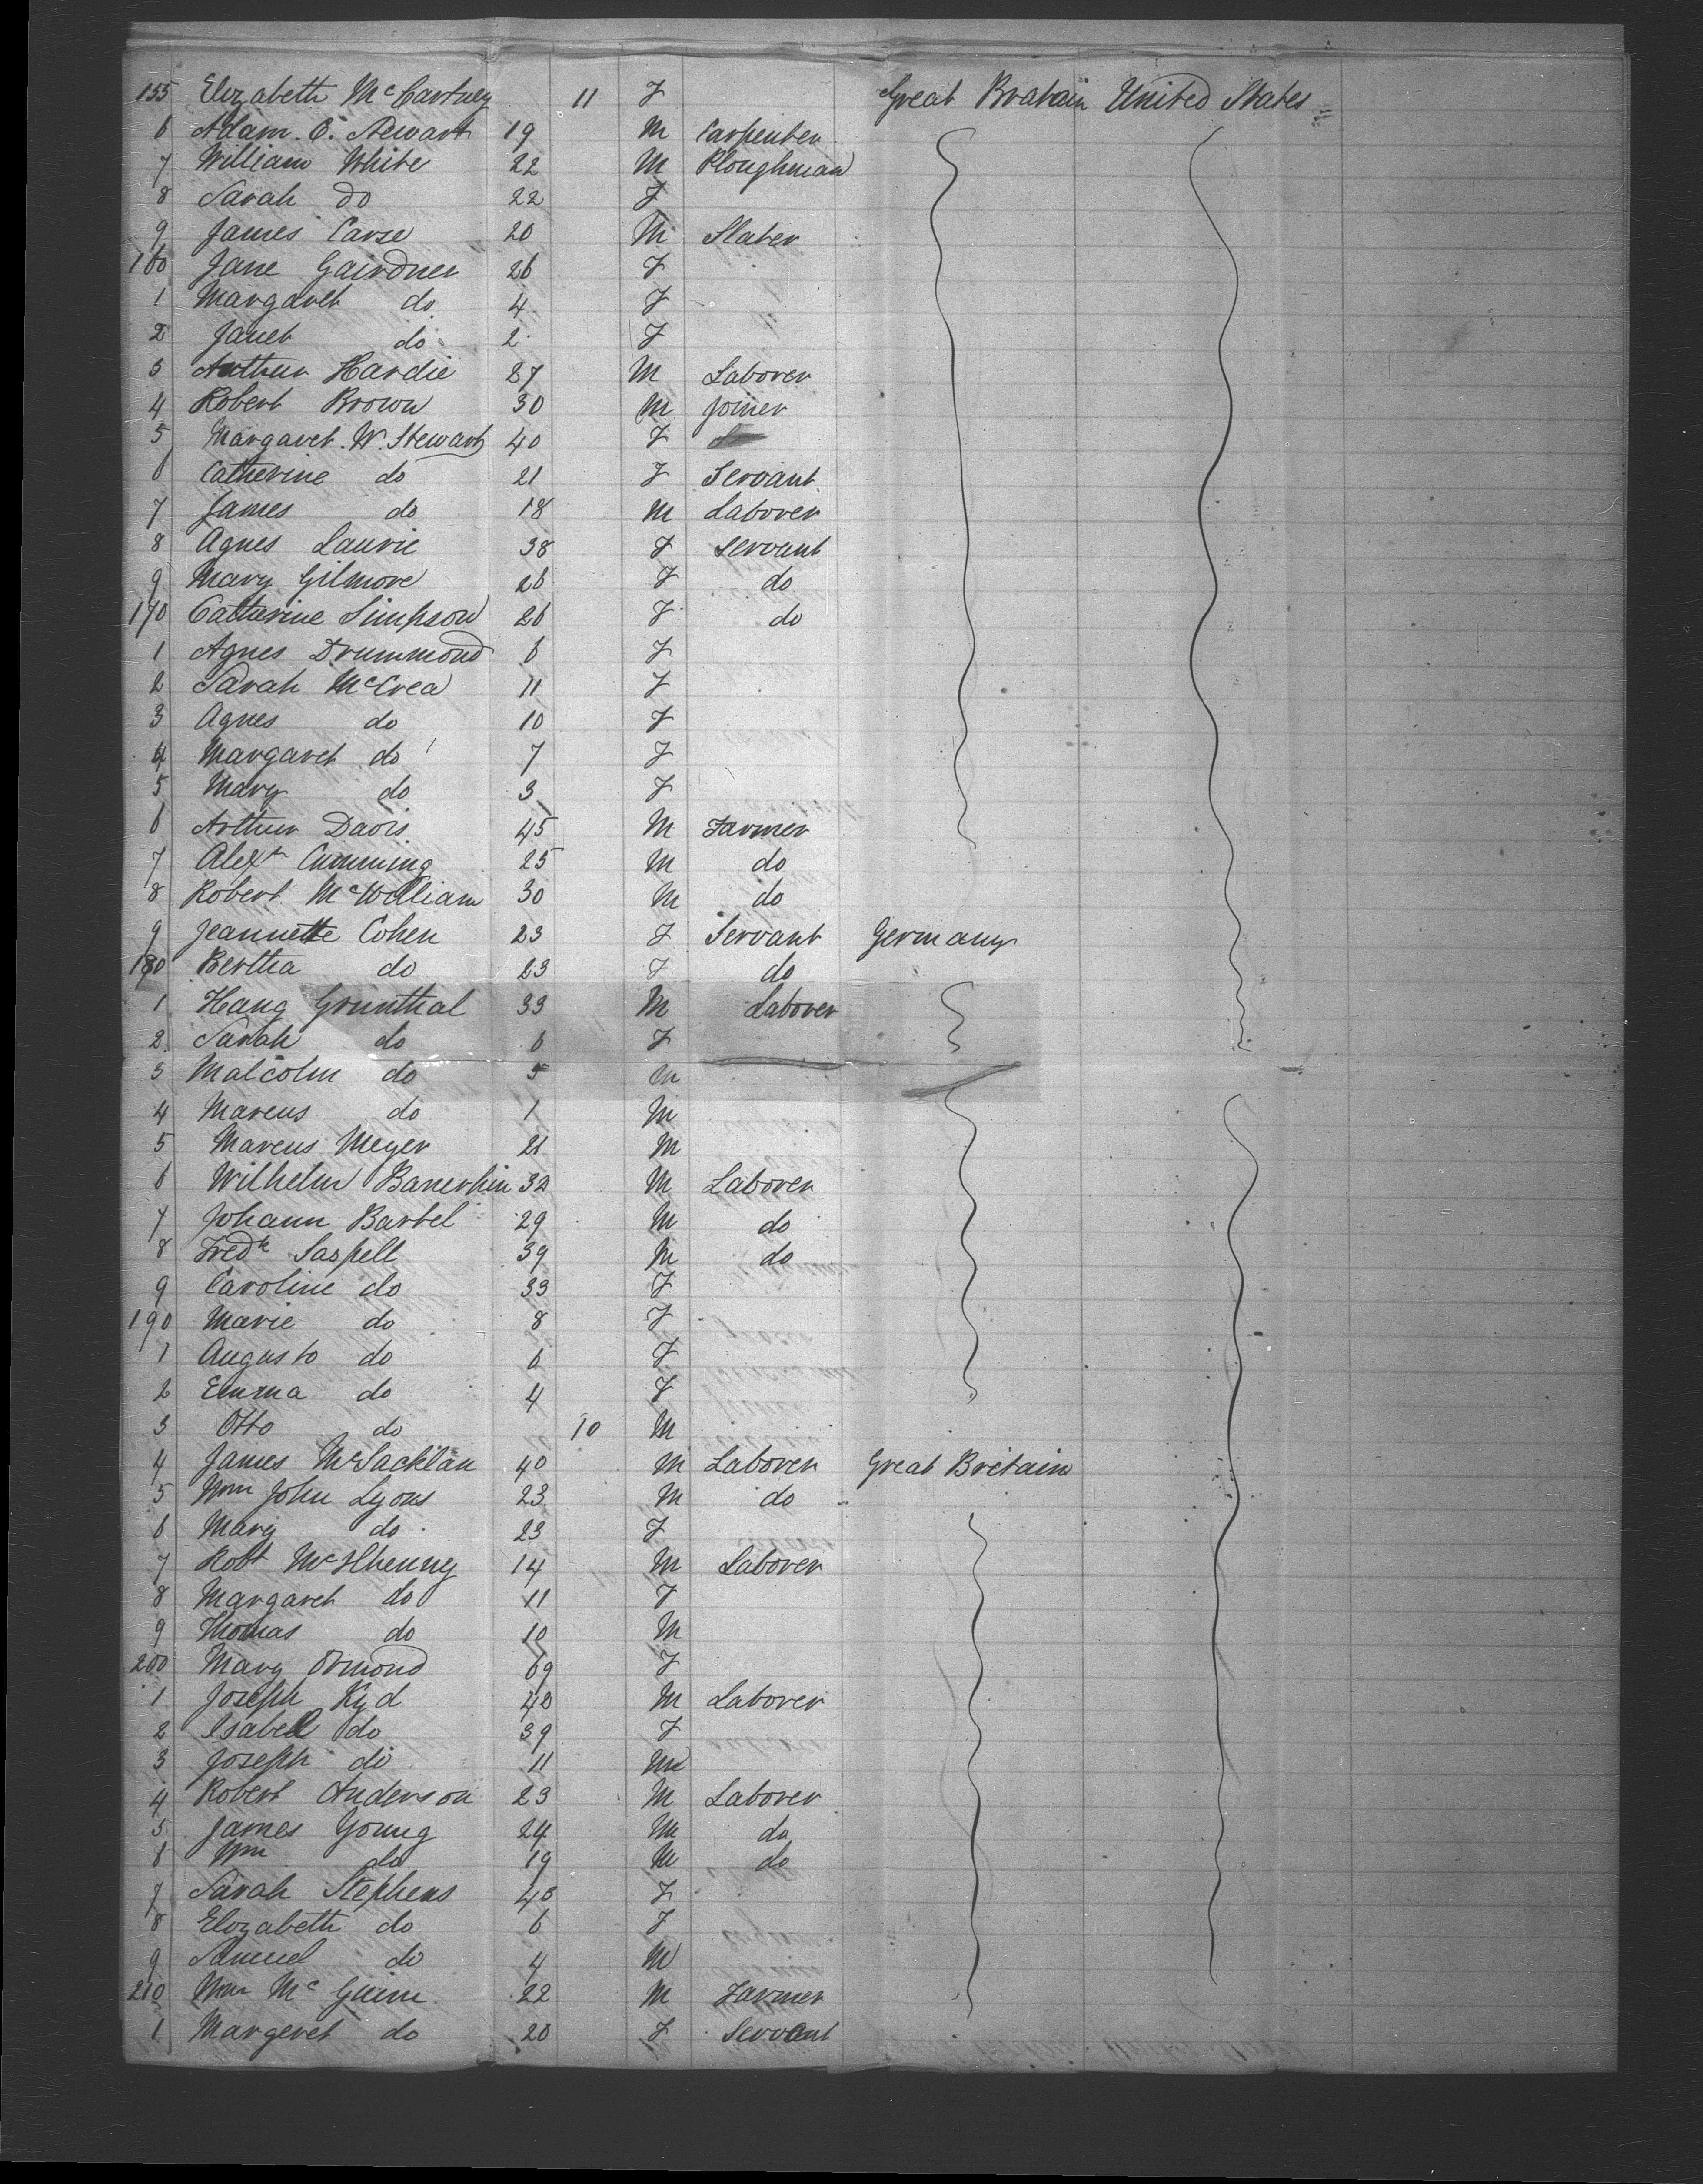 155 Elizabeth McCartney 11 F Great Bratain United States
6 Adam C. Stewart 19 M Carpenter
7 William White 22 M Ploughman
8 Sarah do 22 F
9 James Carse 20 M Slater
160 Jane Gairdner 26 F
1 Margaret do 4 F
2 Janet do 2 F
3 Arthur Hardie 27 M Laborer
4 Robert Brown 30 M Joiner
5 Margaret W. Stewart 40 F
6 Catherine do 21 F Servant
7 James do 18 M Laborer
8 Agnes Laurie 38 F Servant
9 Mary Gilmore 26 F do
170 Catherine Simpson 26 F do
1 Agnes Drummond 6 F
2 Sarah McCrea 11 F
3 Agnes do 10 F
4 Margaret do 7 F
5 Mary do 3 F
6 Arthur Davis 45 M Farmer
7 Alexr Cumming 25 M do
8 Robert McWilliam 30 M do
9 Jeannette Cohen 23 F Servant Germany
180 Bertha do 23 F do
1 Hang Grunthal 33 M Laborer
2 Sarah do 6 F
3 Malcolm do 5 M
4 Marcus do 1 M
5 Marcus Meyer 21 M
6 Wilhelm 32 M Laborer
7 Johann Bartel 29 M do
8 Fredk Saspell 39 M do
9 Caroline do 33 F
190 Marie do 8 F
1 Augusto do 6 F
2 Emma do 4 F
3 Otto do 10 M
4 James McSacklan 40 M Laborer Great Britain
5 Wm John Lyons 23 M do
6 Mary do 23 F
7 Robt McIlhenny 14 M Laborer
8 Margaret do 11 F
9 Thomas do 10 M
200 Mary Ormond 69 F
1 Joseph Kyd 40 M Laborer
2 Isabell do 39 F
3 Joseph do 11 M
4 Robert Anderson 23 M Laborer
5 James Young 24 M do
6 Wm do 19 M do
7 Sarah Stephens 40 F
8 Elizabeth do 6 F
9 Samuel do 4 M
210 Wm McGuinn 22 M Farmer
1 Margeret do 20 F Servant